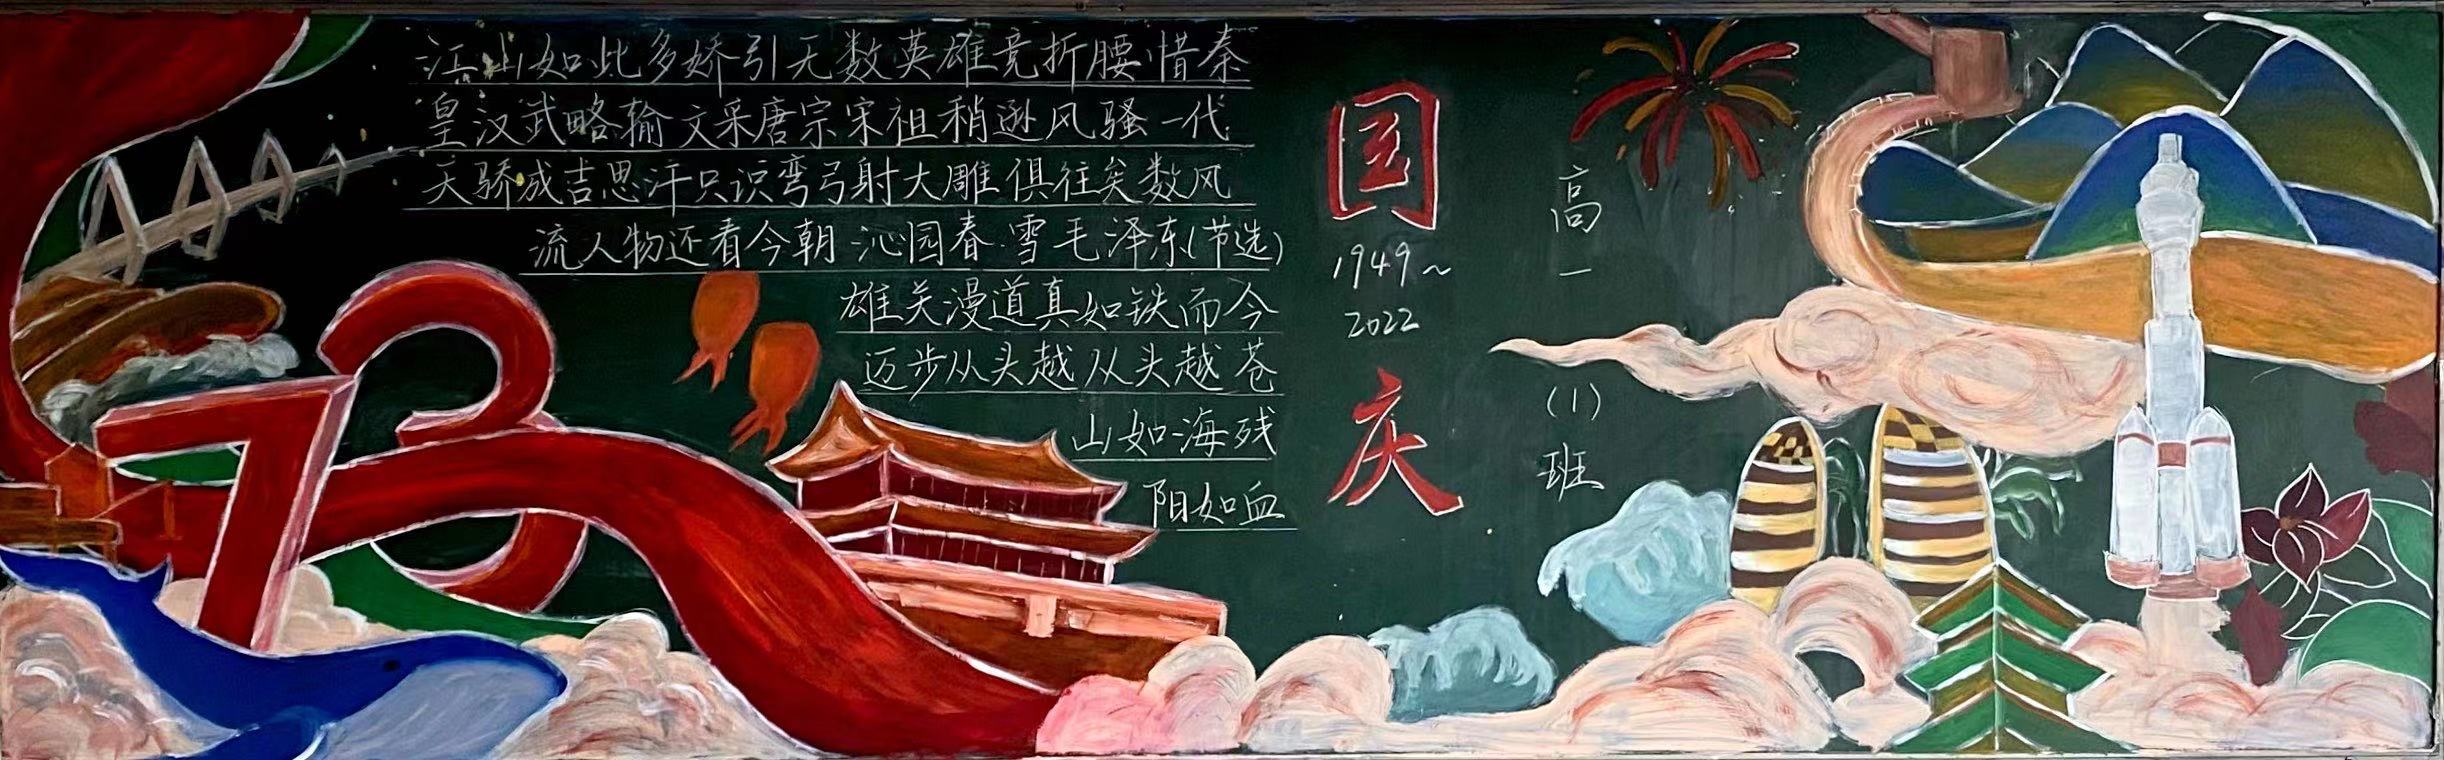 江山如此多娇引无数英雄竞折腰惜秦
皇汉武略输文采唐宗宋祖稍逊风骚一代
天骄成吉思汗只识弯弓射大雕俱往矣数风
流人物还看今朝 沁园春·雪毛泽东(节选)
雄关漫道真如铁而今
迈步从头越从头越苍
山如海残
阳如血
73
国
1949~
2022
庆
高一
(1)
班